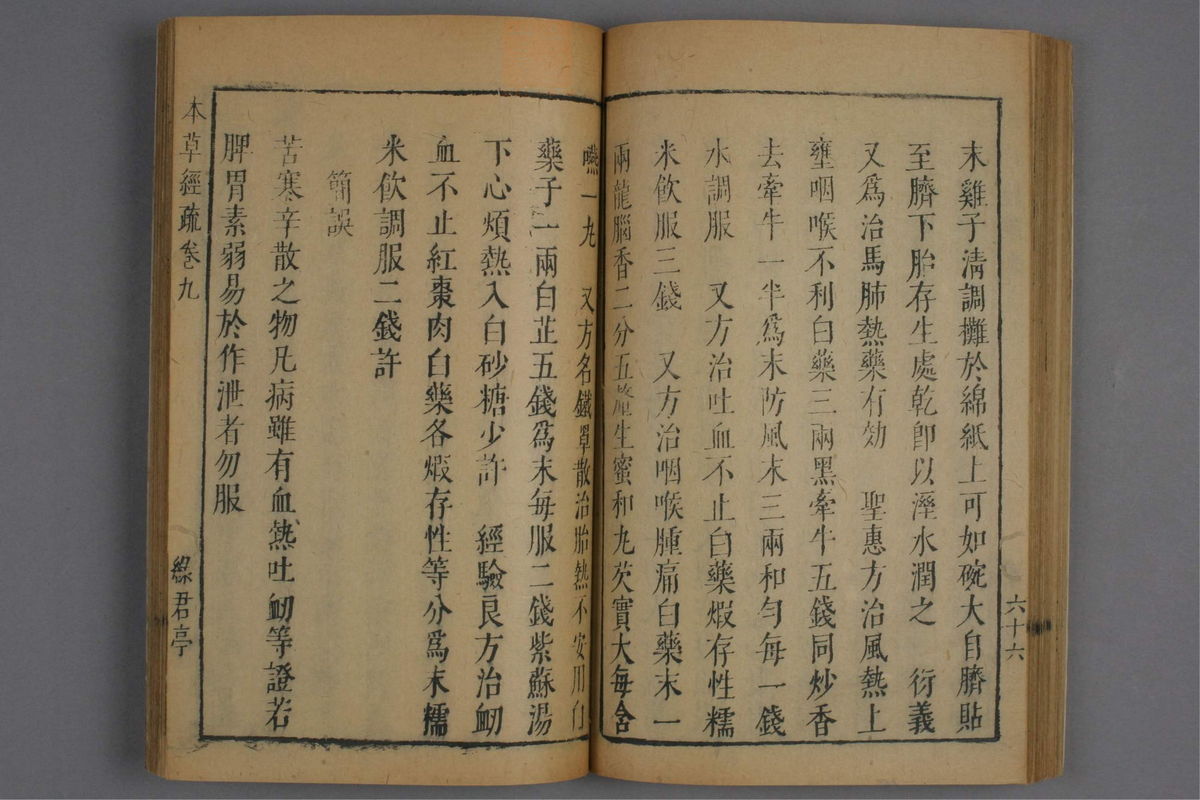 六十六
末雞子淸調攤於綿紙上可如碗大自臍貼
至臍下胎存生處乾卽以溼水潤之　衍義
又爲治馬肺熱藥有効　聖惠方治風熱上
壅咽喉不利白藥三兩黑牽牛五錢同炒香
去牽牛一半爲末防風末三兩和勻每一錢
水調服　又方治吐血不止白藥煆存性糯
米飲服三錢　又方治咽喉腫痛白藥末一
兩龍腦香二分五釐生蜜和丸芡實大每含
嚥一丸　又方名鐵罩散治胎熱不安用白
藥子一兩白芷五錢爲末每服二錢紫蘇湯
下心煩熱入白砂糖少許　經驗良方治衄
血不止紅棗肉白藥各煆存性等分爲末糯
米飲調服二錢許
簡誤
苦寒辛散之物凡病雖有血熱吐衄等證若
脾胃素弱易於作泄者勿服
本草經疏卷九
綠君亭